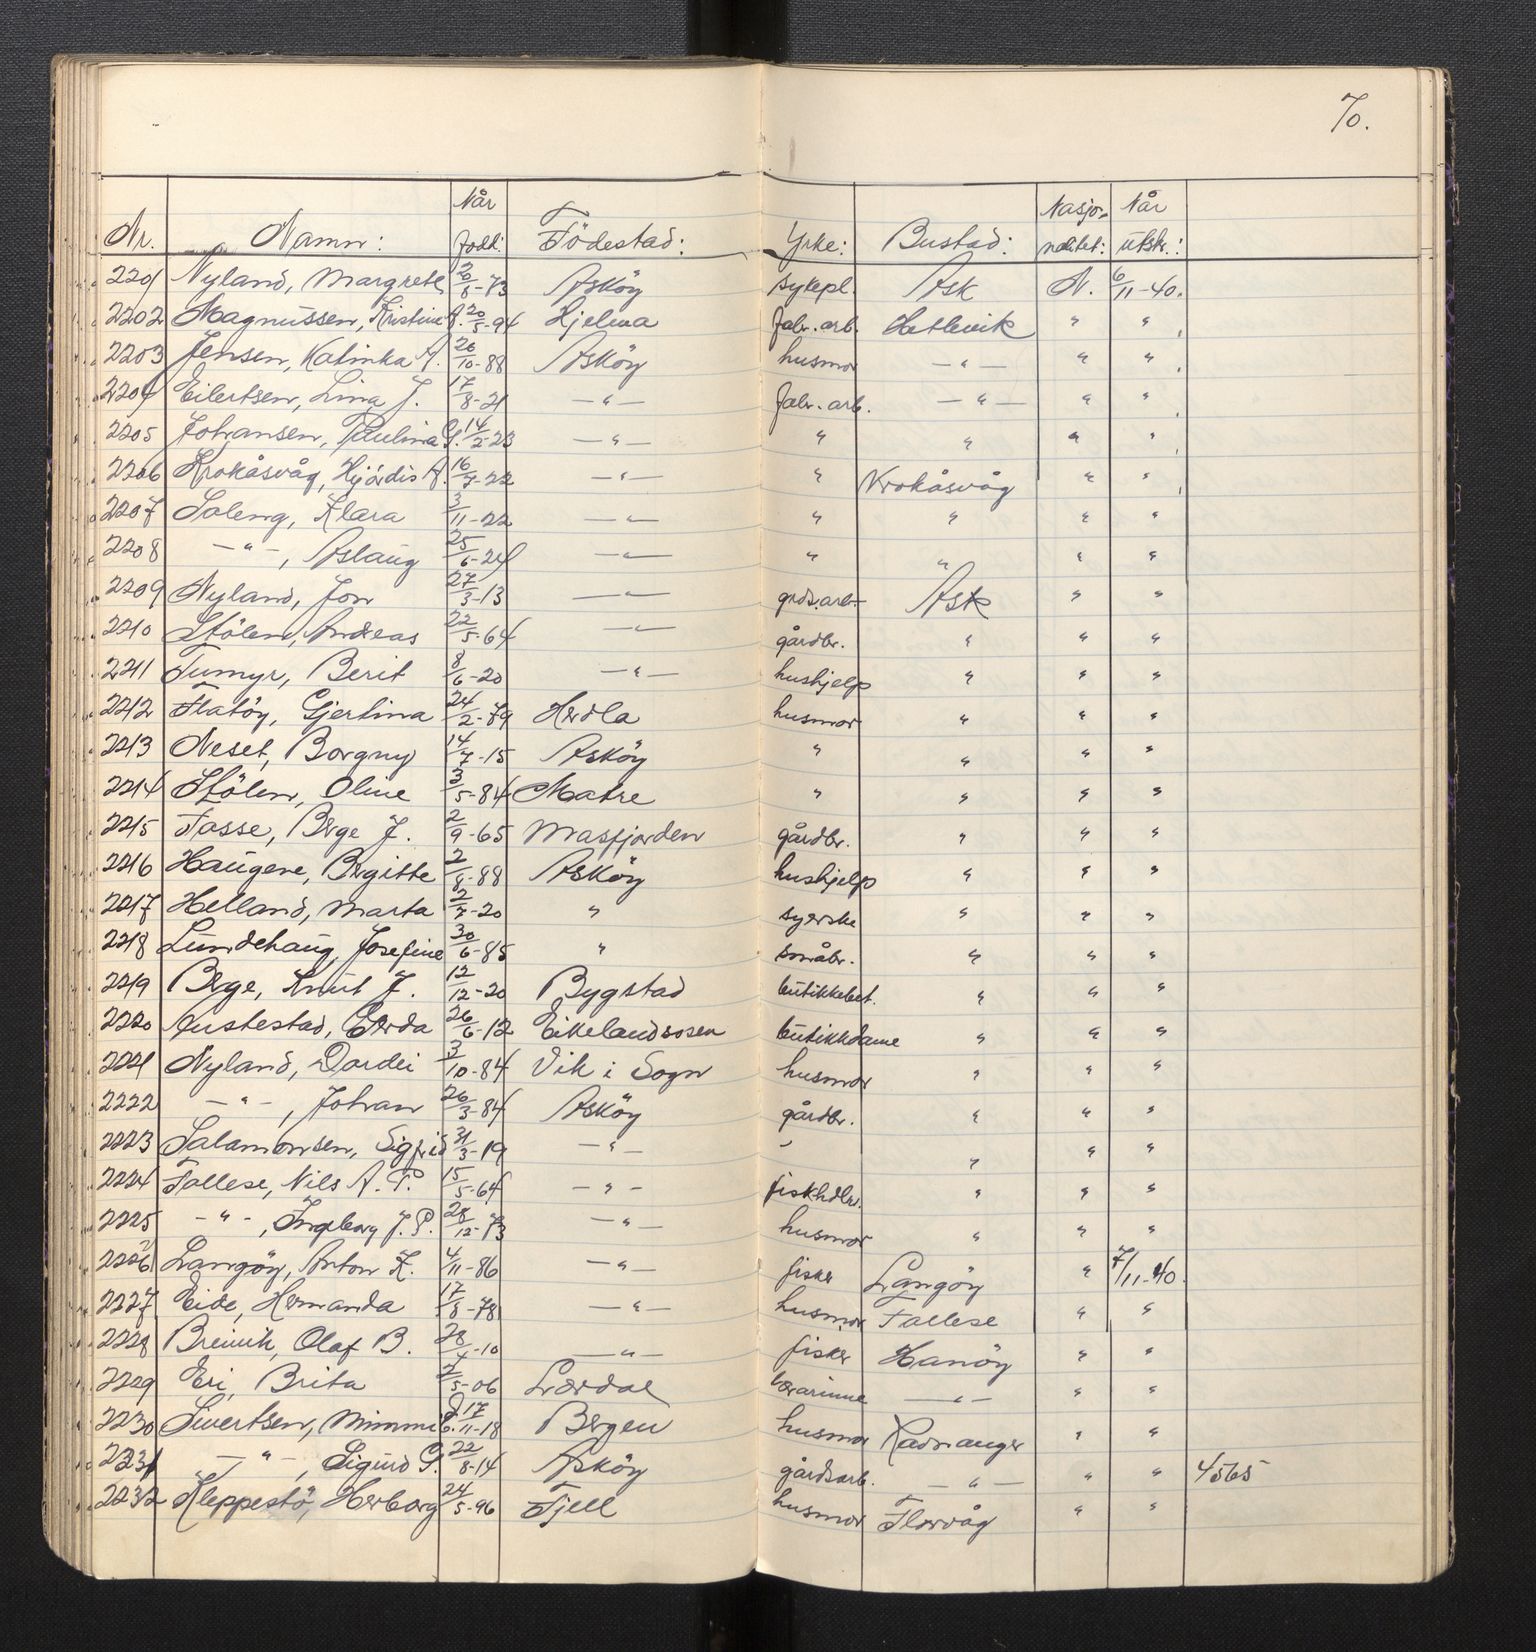 70.
Nr. Namn: Når født: Födestad: Yrke: Bustad: Nasjonalitet: Når utskr.:
2201 Nyland, Margrete 20/8-73 Asköy sykepl. Ask N. 6/11-40.
2202 Magnussen, Kristine 20/5-94 Hjelma fabr. arb. Hetlevik " "
2203 Jensen, Katinka A. 26/10-88 Asköy husmor -"- " "
2204 Eilertsen, Lina J. 17/8-21 -"- fabr. arb. -"- " "
2205 Johansen, Paulina G. 14/2-23 -"- " " " "
2206 Krokåsvåg, Hjördis A. 16/7-22 -"- " Krokåsvåg " "
2207 Soleng, Klara 3/11-22 -"- " " " "
2208 -"-, Aslaug 25/6-24 -"- " " " "
2209 Nyland, Jon 27/3-13 -"- grds.arb. Ask " "
2210 Stölen, Andreas 22/5-64 -"- gårdbr. " " "
2211 Tumyr, Berit 8/6-20 -"- hushjelp " " "
2212 Flatöy, Gjertina 24/2-79 Herdla husmor " " "
2213 Neset, Borgny 14/7-15 Asköy " " " "
2214 Stölen, Oline 3/5-84 Matre " " " "
2215 Fosse, Berge J. 2/9-65 Masfjorden gårdbr. " " "
2216 Haugene, Birgitte 2/8-88 Asköy hushjelp " " "
2217 Helland, Marta 2/7-20 " syerske " " "
2218 Lundehaug, Josefine 30/6-85 " småbr. " " "
2219 Berge, Knut J. 12/12-20 Bygstad butikkbet. " " "
2220 Austestad, Gerda 26/6-12 Eikelandsosen butikkdame " " "
2221 Nyland, Dordei 3/10-84 Vik i Sogn husmor " " "
2222 -"-, Johan 26/3-84 Asköy gårdbr. " " "
2223 Salamonsen, Sigfrid 31/3-19 -"- " " " "
2224 Follese, Nils A. P. 15/5-64 -"- fiskhdlr. " " "
2225 -"-, Ingeborg J. P. 28/12-73 -"- husmor " " "
2226 Langöy, Anton K. 4/11-86 -"- fisker Langöy " 7/11-40.
2227 Eide, Hermanda 17/8-78 -"- husmor Follese " "
2228 Breivik, Olaf B. 28/4-10 -"- fisker Hanöy " "
2229 Eri, Brita 2/5-06 Lærdal lærarinne -"- " "
2230 Sivertsen, Mimmi G. 17/11-18 Bergen husmor Ravnanger " "
2231 -"-, Sigurd G. 22/8-14 Asköy gårdsarb. -"- " " 4565
2232 Kleppestö, Herborg 24/5-96 Fjell husmor Florvåg " "